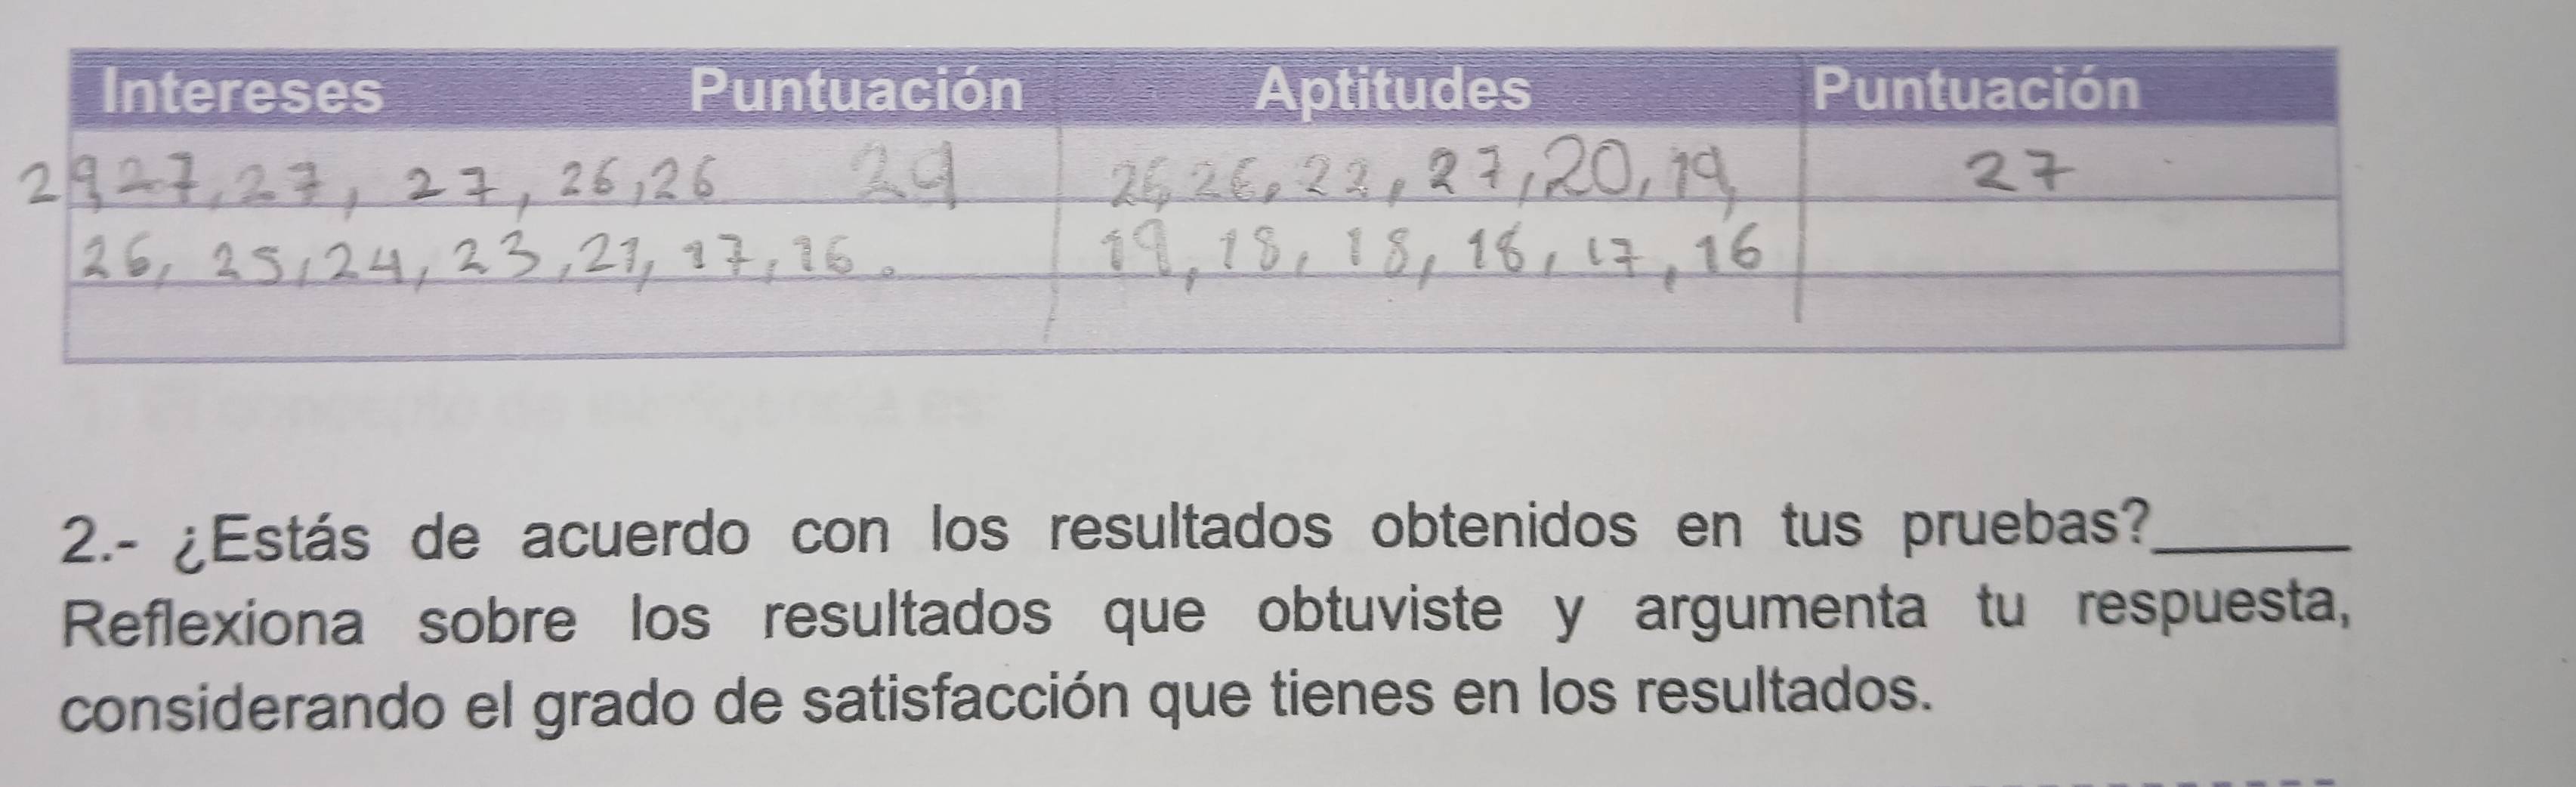 Intereses Puntuación Aptitudes Puntuación
29, 27, 27, 27, 26, 26 29 26, 26, 22, 27, 20, 19, 27
26, 25, 24, 23, 21, 17, 16. 19, 18, 18, 18, 17, 16
2.- ¿Estás de acuerdo con los resultados obtenidos en tus pruebas?______
Reflexiona sobre los resultados que obtuviste y argumenta tu respuesta,
considerando el grado de satisfacción que tienes en los resultados.